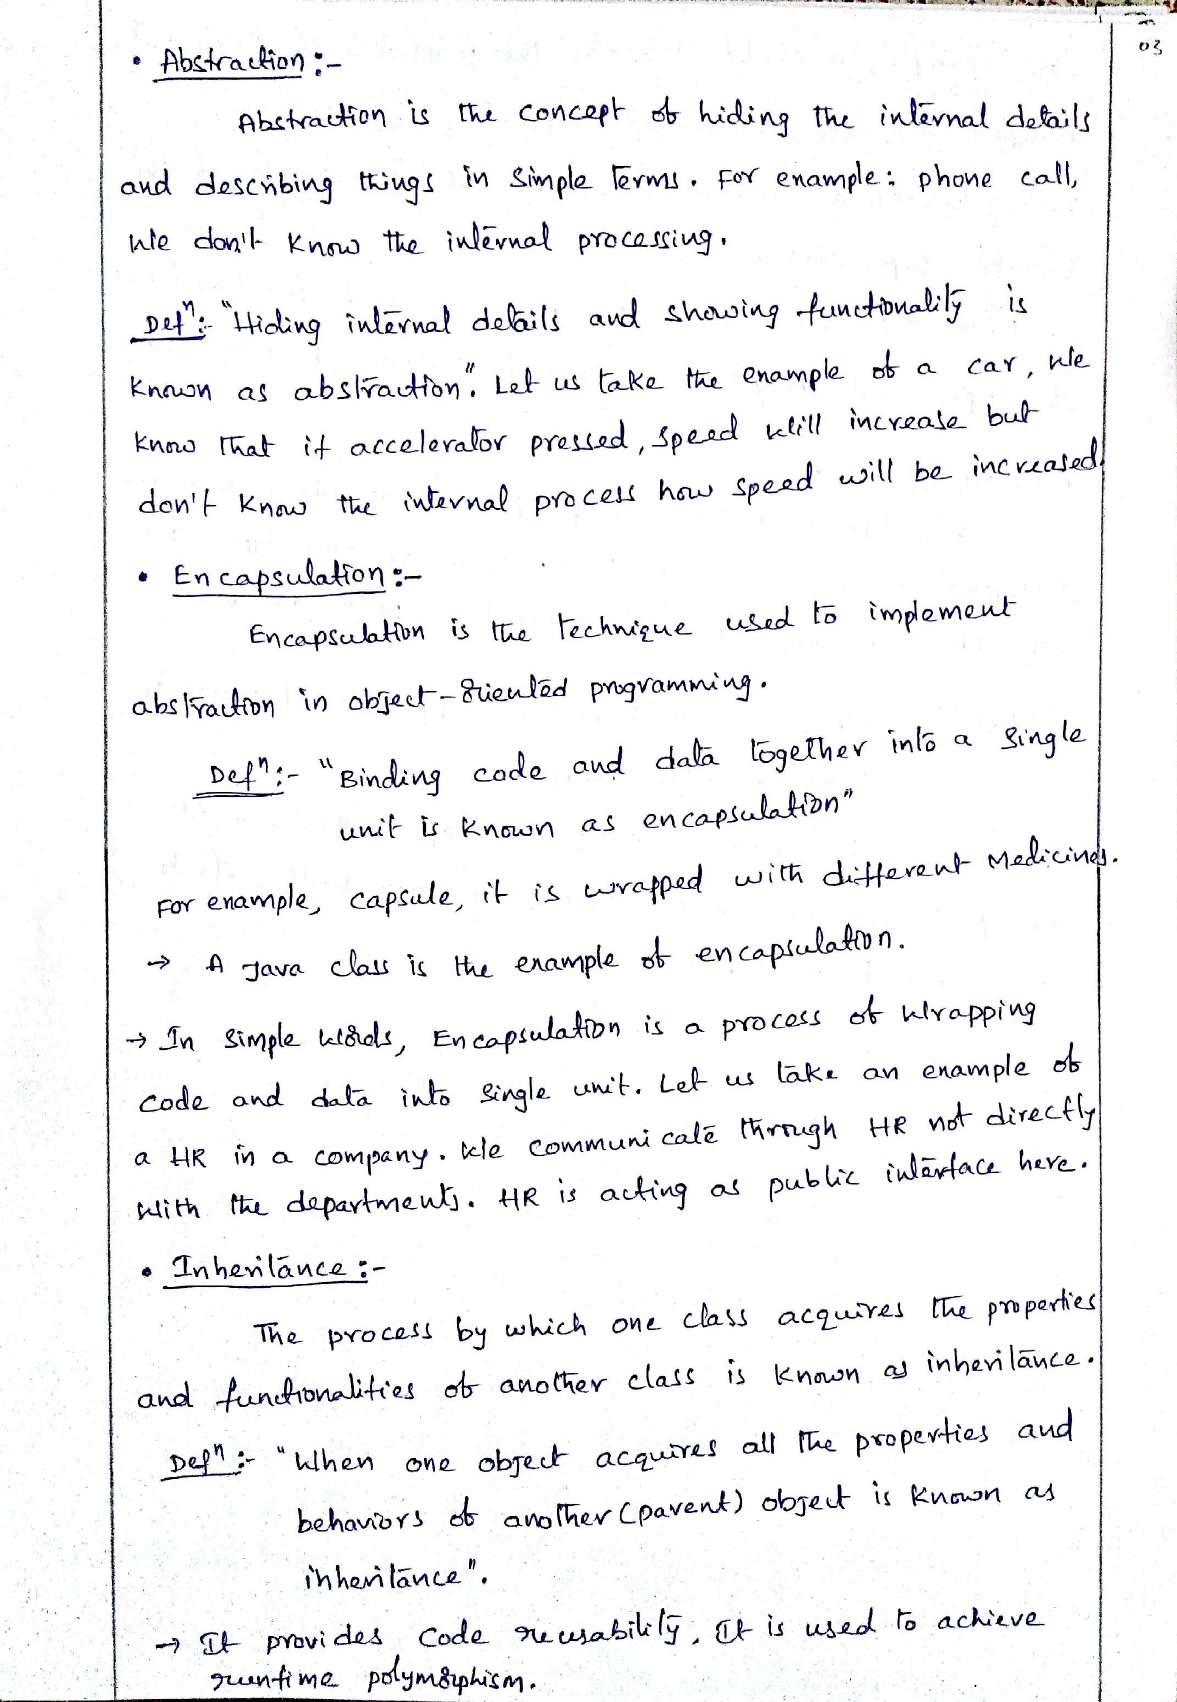 03
• Abstraction :-
Abstraction is the concept of hiding the internal details
and describing things in simple terms. For example: phone call,
we don't know the internal processing.
Defⁿ:- "Hiding internal details and showing functionality is
known as abstraction". Let us take the example of a car, we
know that if accelerator pressed, speed will increase but
don't know the internal process how speed will be increased.
• Encapsulation :-
Encapsulation is the technique used to implement
abstraction in object-oriented programming.
Defⁿ:- "Binding code and data together into a single
unit is known as encapsulation"
For example, capsule, it is wrapped with different Medicines.
→ A Java class is the example of encapsulation.
→ In simple words, Encapsulation is a process of wrapping
code and data into single unit. Let us take an example of
a HR in a company. We communicate through HR not directly
with the departments. HR is acting as public interface here.
• Inheritance :-
The process by which one class acquires the properties
and functionalities of another class is known as inheritance.
Defⁿ:- "When one object acquires all the properties and
behaviors of another (parent) object is known as
inheritance".
→ It provides code reusability. It is used to achieve
runtime polymorphism.